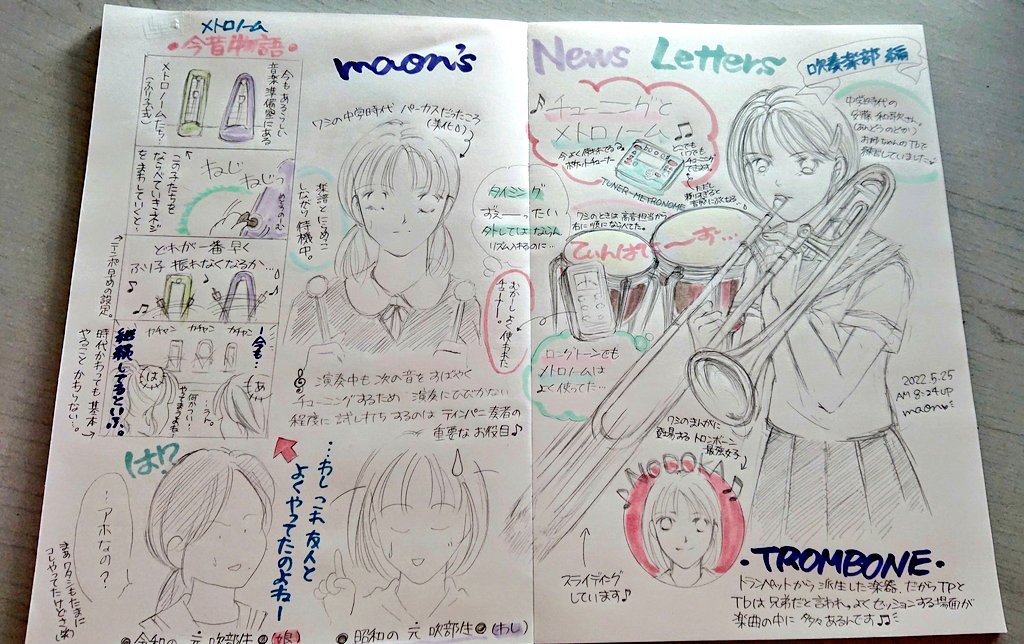 メトロノーム
・今昔物語・
今もあるらしい
音楽準備室にある
メトロノームたち
(ふりこ式)
この子たちを
ならべていきネジ
をまわしていくと…
ねじ
ねじっ
どれが一番早く
ふり子振れなくなるか…
テンポ早めの設定。
カチャン
カチャン
カチャン
今も…
継続してるという。
時代かわっても基本
やること かわらない。
は!?
…アホなの?
まあワタシもたまに
コレやってたけどさ
・令和の元吹部生・(娘)
…わし これ 友人と
よくやってたのよねー
・昭和の元吹部生・(わし)
maon's
News Letters
吹奏楽部編
ワシの中学時代 パーカスだったころ
(美化0)
楽譜とにらめっこ
しながら待機中。
タイミング
ずぇーったい
外してはならん
リズム入れるのに…
むかーしよく使われた
チューナー。
演奏中も次の音をすばやく
チューニングするため 演奏にひびかない
程度に試し打ちするのは ティンパニ奏者の
重要なお役目♪
チューニングと
メトロノーム♫
今よく使われてる
ポケットチューナー
どこでも
いつでも
チューニング
できます。
TUNER-METRONOME
ワシのときは高音担当から
右に順にならべてた。
てぃんぱにーず…
ロングトーンでも
メトロノームは
よく使ってた…
中学時代の
安藤和歌さん。
(あんどうのどか)
お姉ちゃんのTbで
練習していました♪
2022.5.25
AM8:24UP
maon
ワシのまんがに
登場するトロンボーン
最強女子
♪NODOKA♫
スライディング
しています♪
・TROMBONE・
トランペットから派生した楽器。だからTpと
Tbは兄弟だと言われ、よくセッションする場面が
楽曲の中に多々あるんです♫